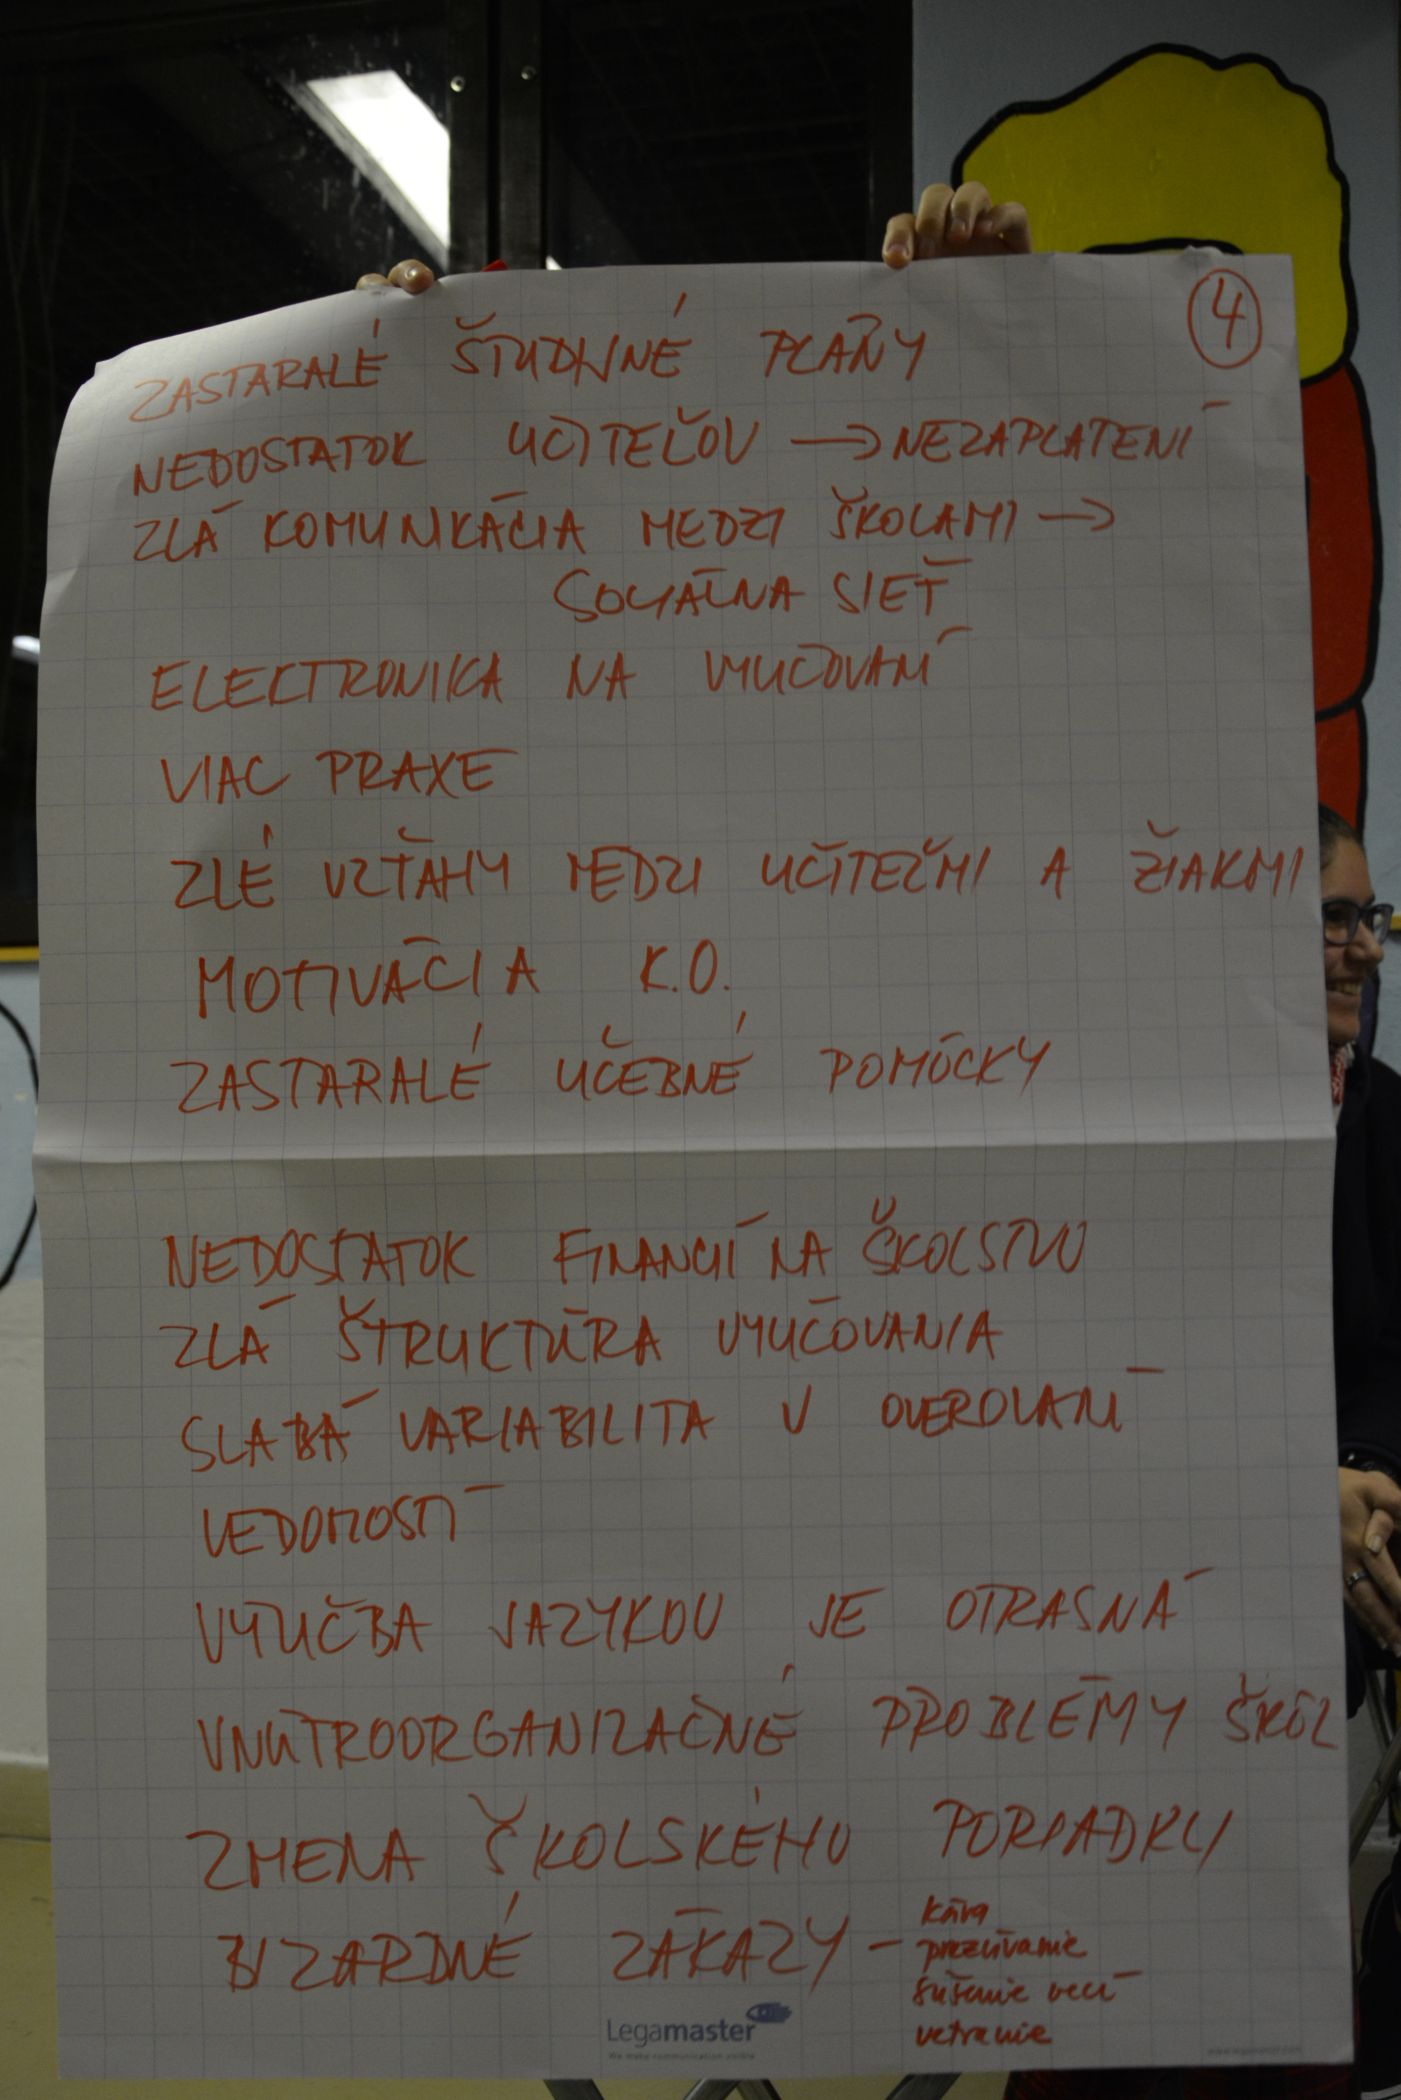 4
ZASTARALÉ ŠTUDIJNÉ PLÁNY
NEDOSTATOK UČITEĽOV → NEZAPLATENÍ
ZLÁ KOMUNIKÁCIA MEDZI ŠKOLAMI →
SOCIÁLNA SIEŤ
ELEKTRONIKA NA VYUČOVANÍ
VIAC PRAXE
ZLÉ VZŤAHY MEDZI UČITEĽMI A ŽIAKMI
MOTIVÁCIA K.O.
ZASTARALÉ UČEBNÉ POMÔCKY
NEDOSTATOK FINANCIÍ NA ŠKOLSTVO
ZLÁ ŠTRUKTÚRA VYUČOVANIA
SLABÁ VARIABILITA V OVEROVANÍ
VEDOMOSTÍ
VÝUČBA JAZYKOV JE OTRASNÁ
VNÚTROORGANIZAČNÉ PROBLÉMY ŠKÔL
ZMENA ŠKOLSKÉHO PORIADKU
BIZARDNÉ ZÁKAZY – káva
prezúvanie
sušenie vecí
vetranie
Legamaster
We make communication visible
www.legamaster.com